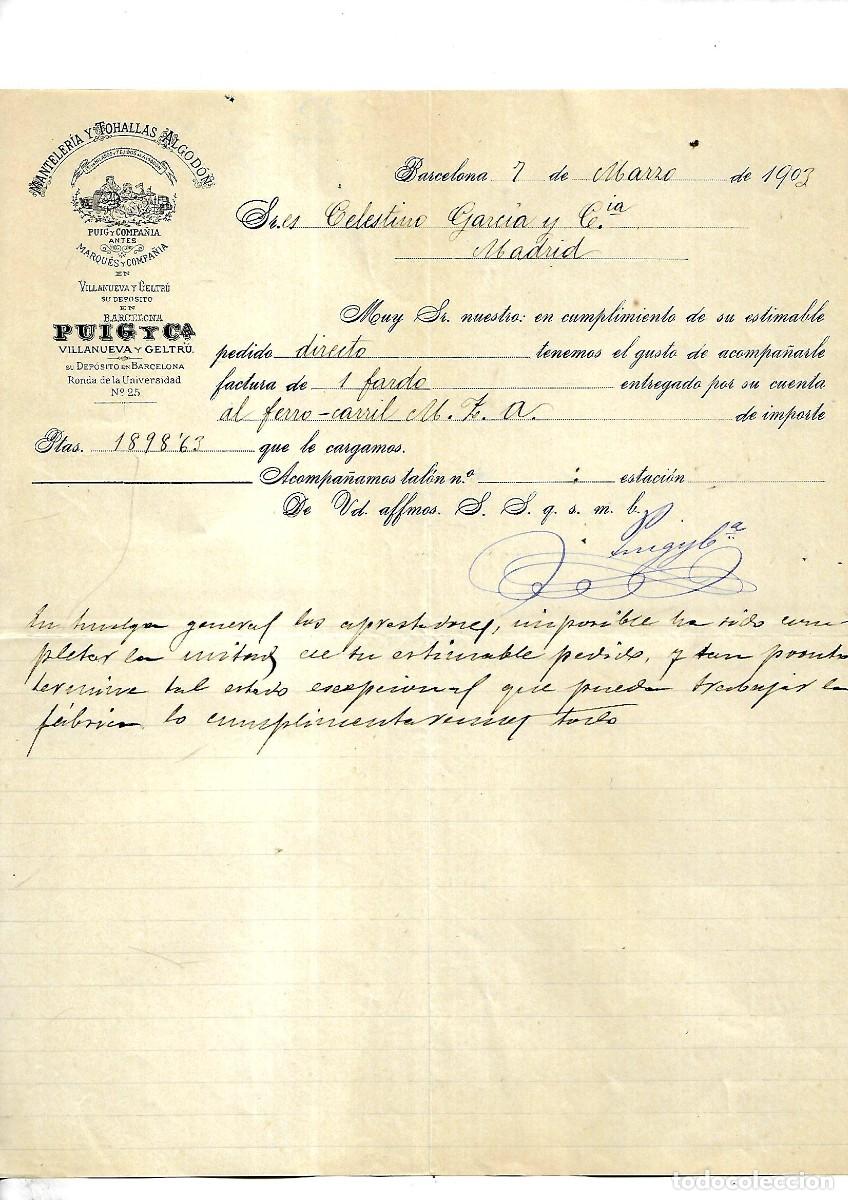 MANTELERÍA Y TOHALLAS ALGODÓN
PUIG Y COMPAÑIA
ANTES
MARQUÉS Y COMPAÑIA
EN
VILLANUEVA Y GELTRÚ
SU DEPOSITO
EN
BARCELONA
PUIG Y Cª
VILLANUEVA Y GELTRÚ.
SU DEPÓSITO EN BARCELONA
Ronda de la Universidad
Nº 25
Barcelona 7 de Marzo de 1903
Sr.es Celestino García y C.ia
Madrid
Muy Sr. nuestro: en cumplimiento de su estimable
pedido directo tenemos el gusto de acompañarle
factura de 1 fardo entregado por su cuenta
al ferro-carril M. Z. A. de importe
Ptas. 1898'63 que le cargamos.
Acompañamos talón n.º : estación
De Vd. affmos. S. S. q. s. m. b.
Puig y Cª
En huelga general los aprestadores, imposible ha sido com-
pletar la mitad de su estimable pedido, y tan pronto
termine tal estado escepcional que pueda trabajar la
fábrica lo cumplimentaremos todo
todocoleccion